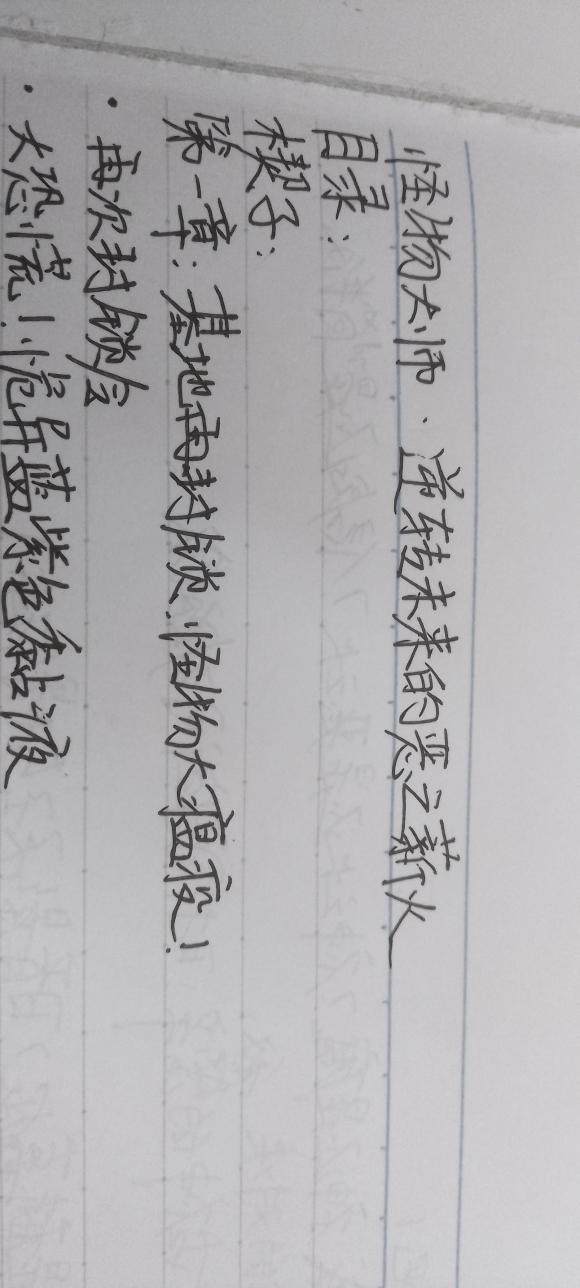 怪物大师·逆转未来的恶之薪火
目录：
楔子：
第一章：基地再封锁.怪物大瘟疫！
·再次封锁会
·大恐慌！怪异蓝紫色黏液